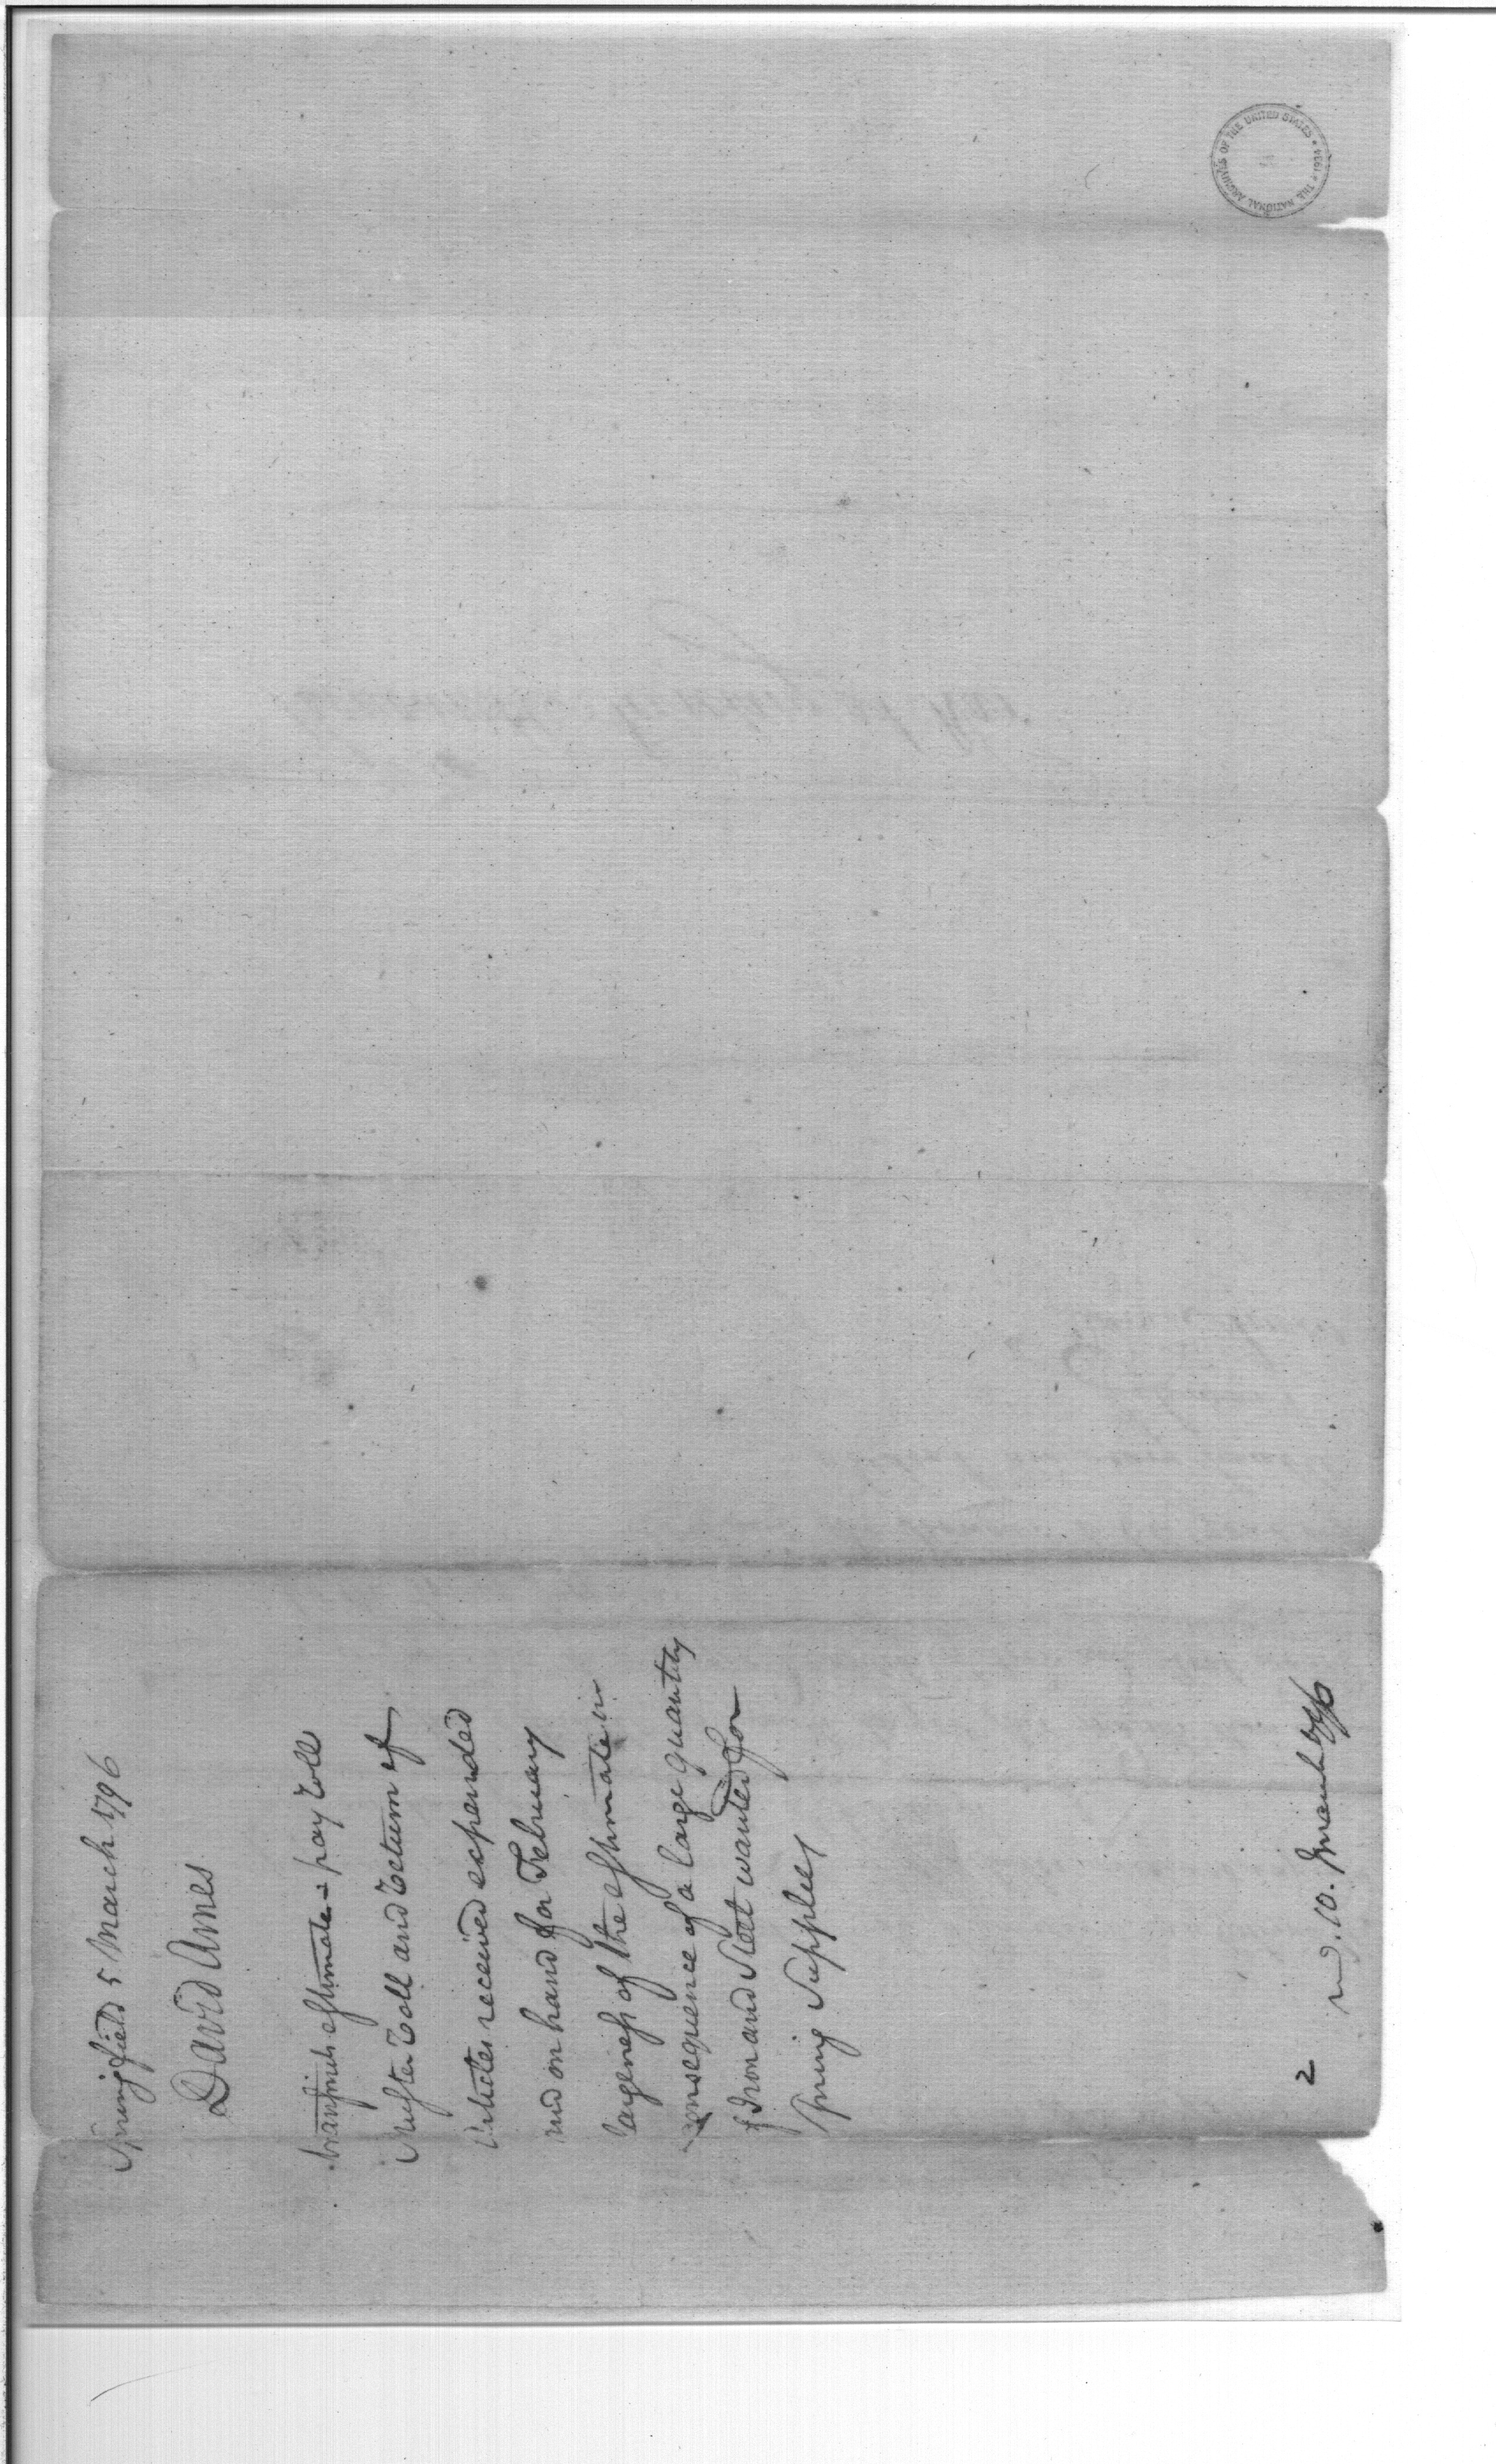 Springfield 5 March 1796
David Ames
transmits estimate & pay Roll
Muster Roll and Return of
Articles received expended
and on hand for February
largeness of the estimate in
consequence of a large quantity
of Iron and Steel wanted for
Spring Supplies
2
rd. 10. March 1796
THE NATIONAL ARCHIVES OF THE UNITED STATES * 1934 *